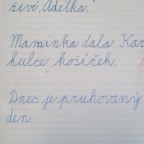 živě, Adélka.
Maminka dala Kar
kulce košíček.
Dnes je pruhovaný
den.